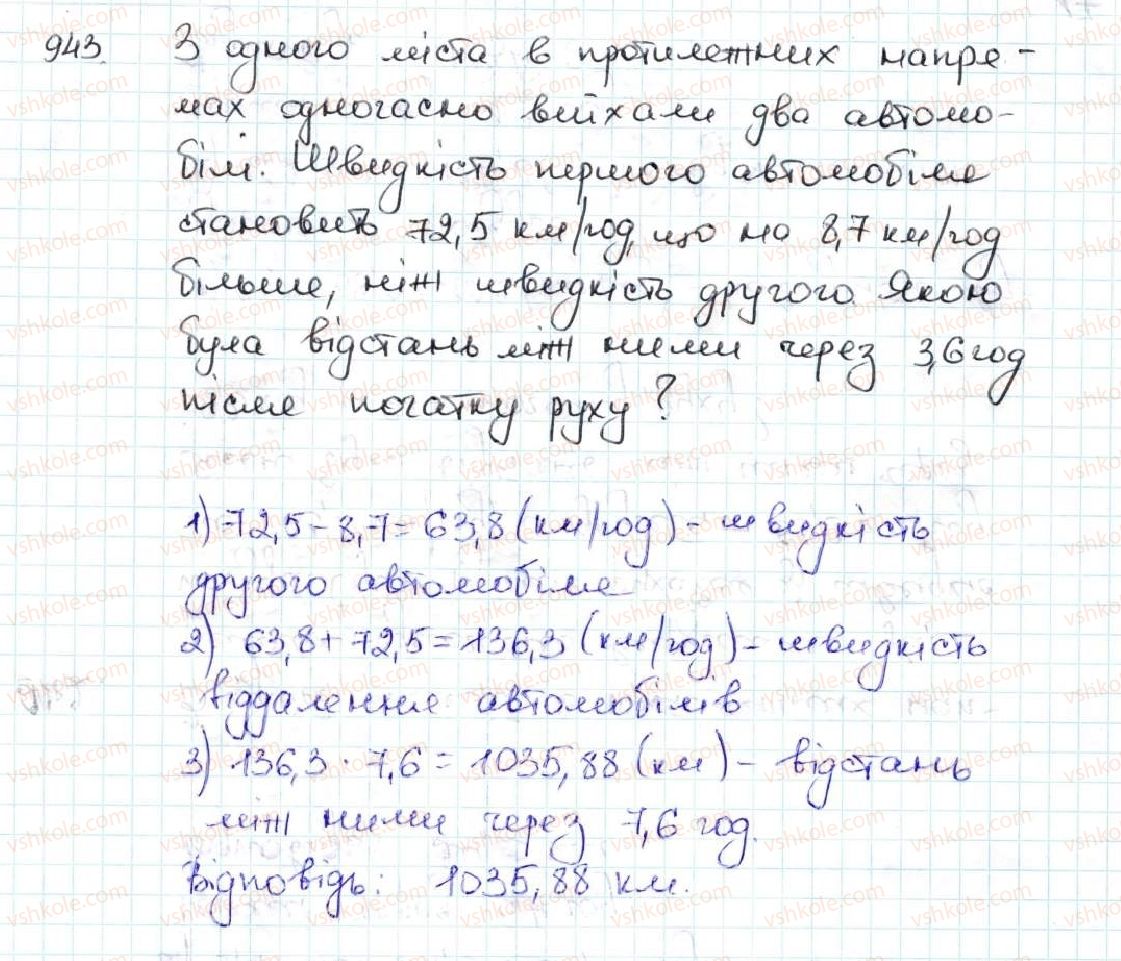 943. З одного міста в протилежних напря-
мах одночасно виїхали два автомо-
білі. Швидкість першого автомобіля
становить 72,5 км/год, що на 8,7 км/год
більше, ніж швидкість другого. Якою
була відстань між ними через 3,6 год
після початку руху?
1) 72,5 - 8,7 = 63,8 (км/год) - швидкість
другого автомобіля
2) 63,8 + 72,5 = 136,3 (км/год) - швидкість
віддалення автомобілів
3) 136,3 · 7,6 = 1035,88 (км) - відстань
між ними через 7,6 год.
Відповідь: 1035,88 км.